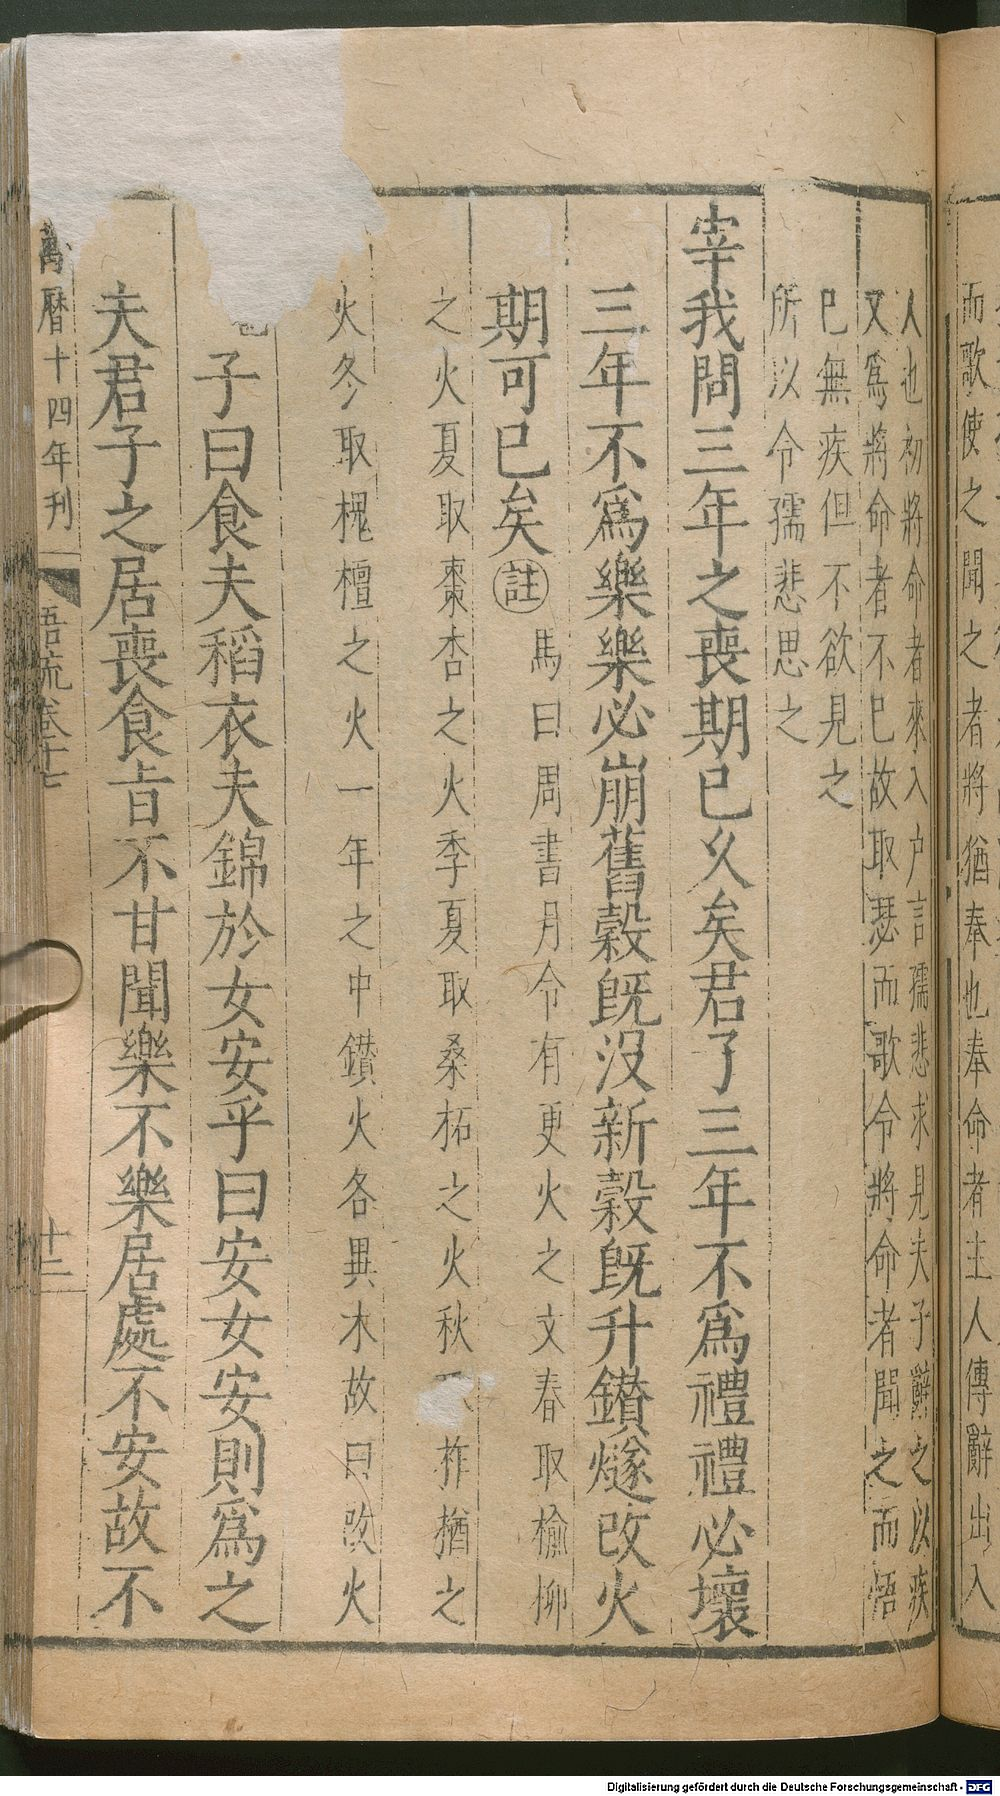 而歌使之聞之者將猶奉也奉命者主人傳辭出入
人也初將命者來入户言孺悲求見夫子辭之以疾
又爲將命者不已故取瑟而歌令將命者聞之而悟
已無疾但不欲見之
所以令孺悲思之
宰我問三年之喪期已久矣君子三年不爲禮禮必壞
三年不爲樂樂必崩舊穀既没新穀既升鑚燧改火
期可已矣註馬曰周書月令有更火之文春取榆柳
之火夏取棗杏之火季夏取桑柘之火秋柞楢之
火冬取槐檀之火一年之中鑚火各異木故曰改火
子曰食夫稻衣夫錦於女安乎曰安女安則爲之
夫君子之居喪食旨不甘聞樂不樂居處不安故不
萬曆十四年刋
語疏卷十七
十二
Digitalisierung gefördert durch die Deutsche Forschungsgemeinschaft - DFG